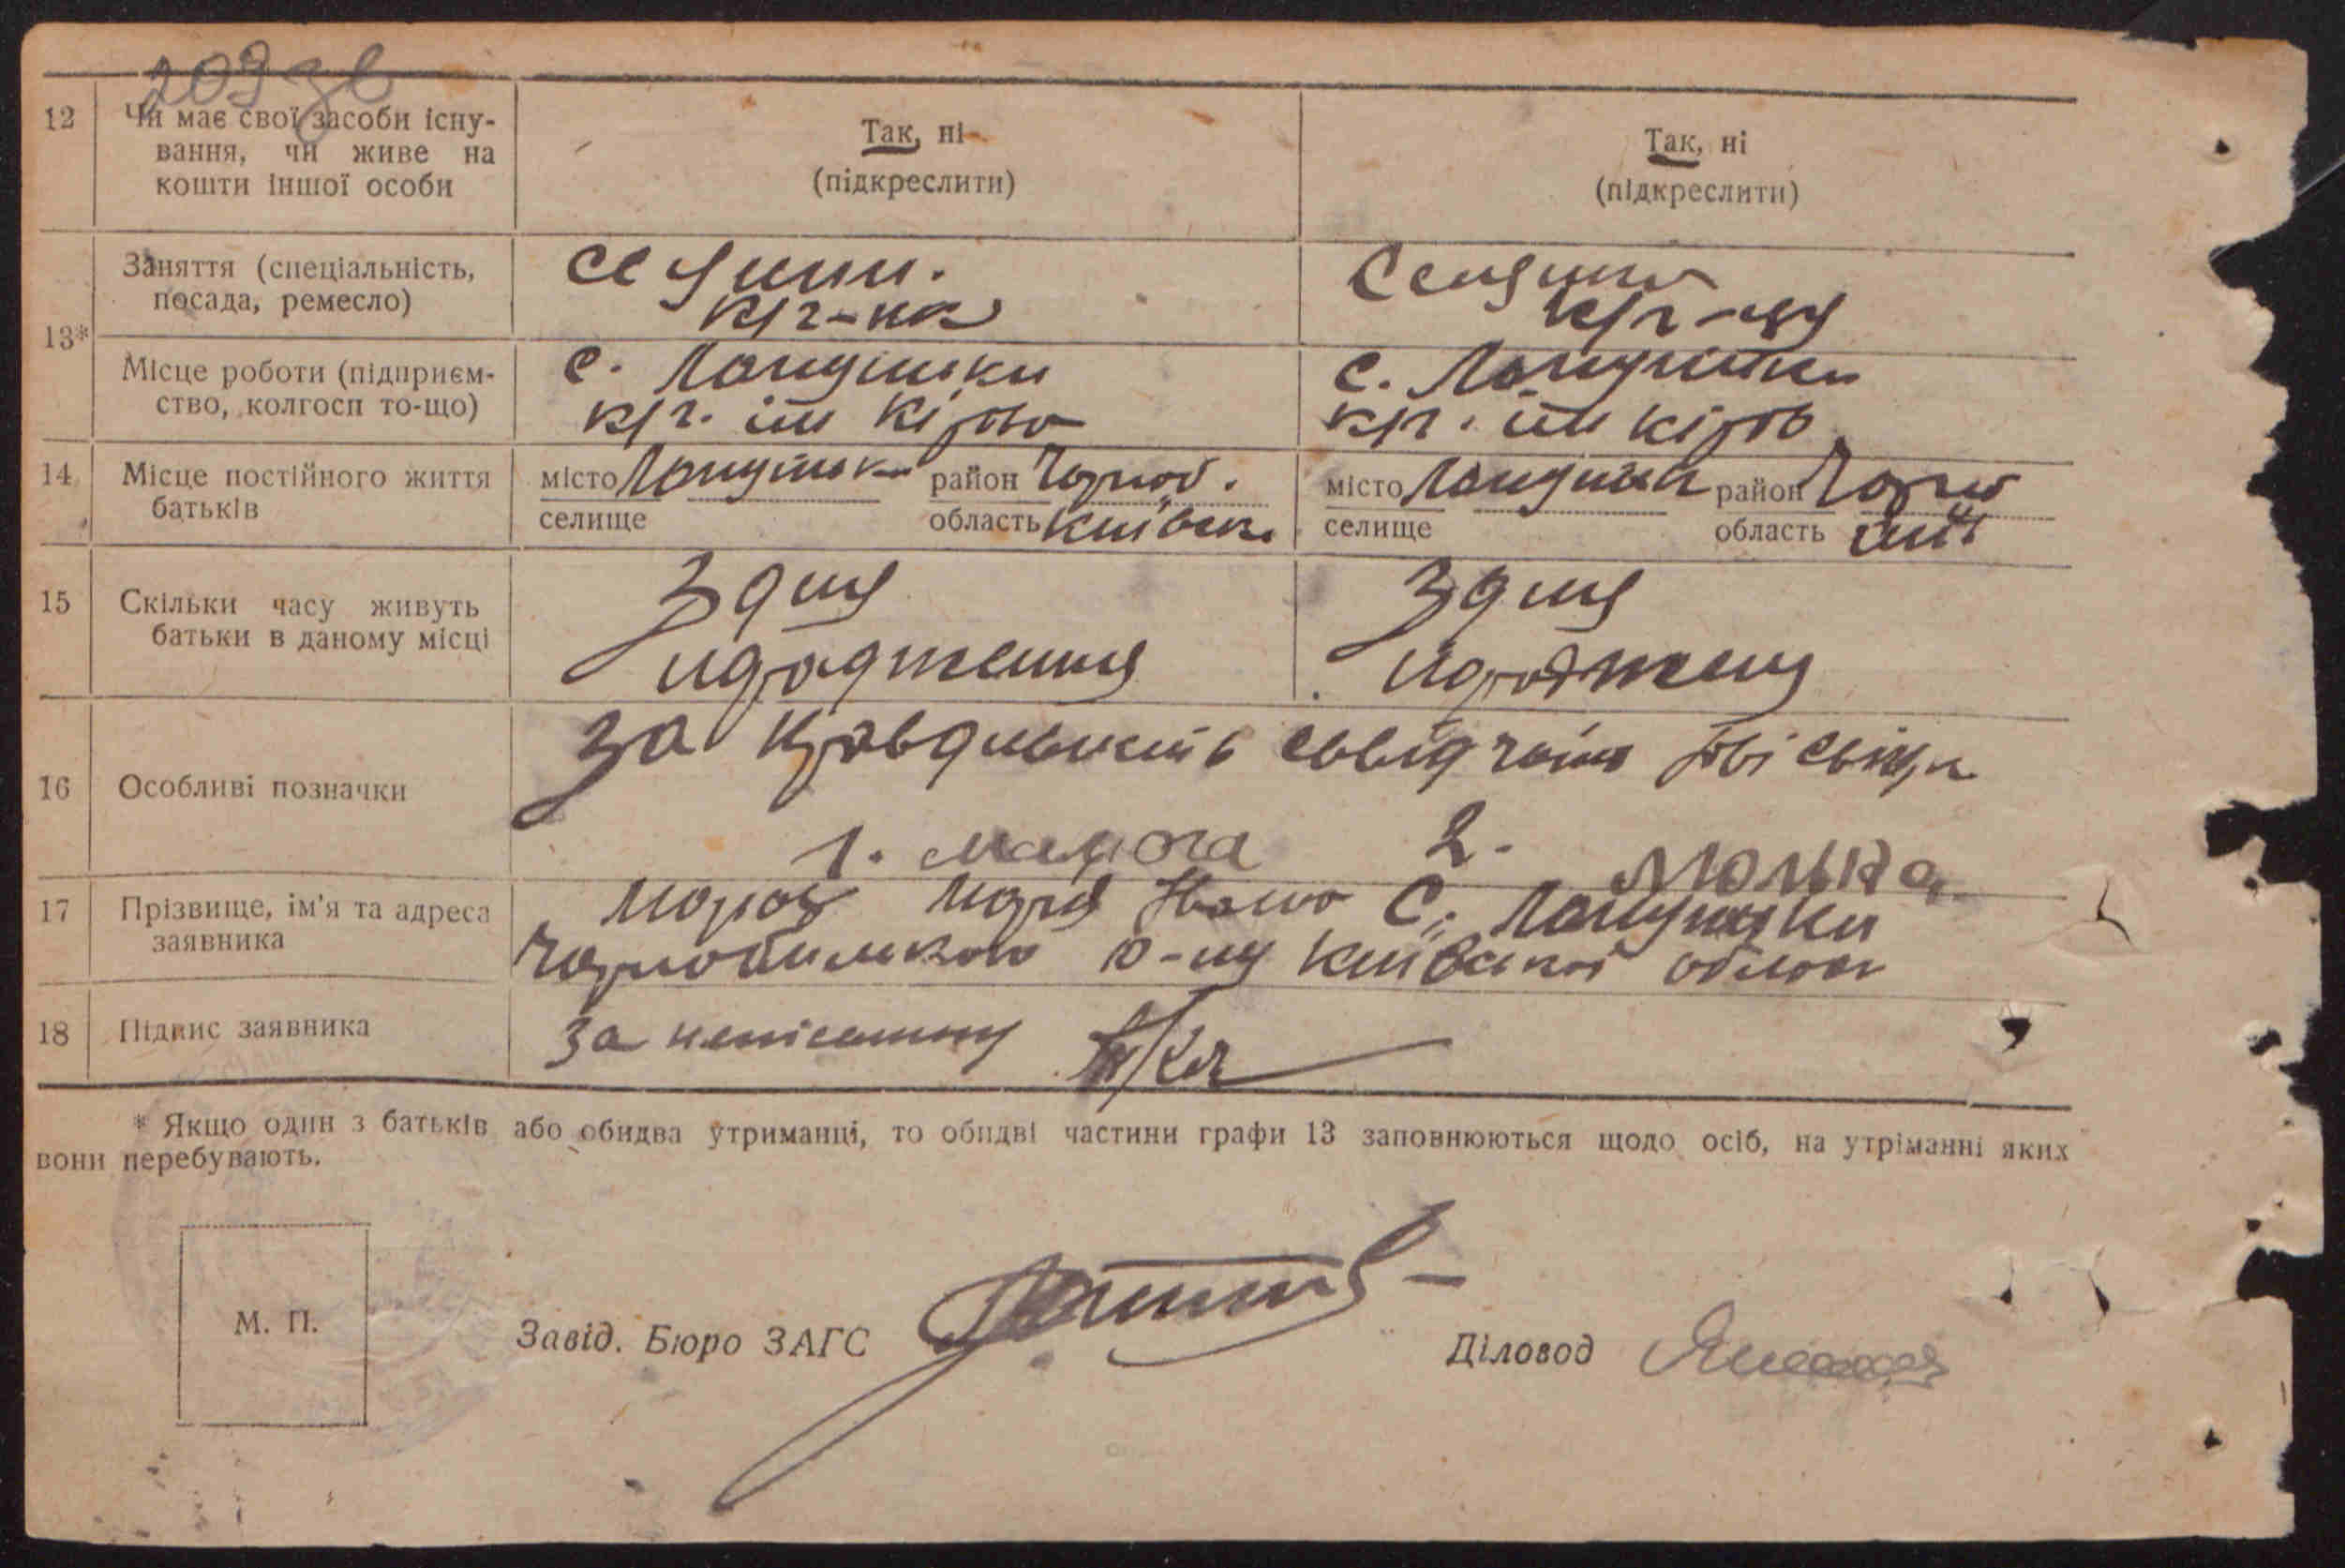 209 зв
12 Чи має свої засоби існу-
вання, чи живе на
кошти іншої особи
Так, ні
(підкреслити)
Так, ні
(підкреслити)
13*
Заняття (спеціальність,
посада, ремесло)
к/г-ик
к/г-ця
Місце роботи (підприєм-
ство, колгосп то-що)
с. Лапутьки
к/г. ім Кірова
с. Лапутьки
к/г. ім Кіров
14 Місце постійного життя
батьків
місто Лапутьки район Чорноб.
селище область Київськ.
місто Лапутьки район Чорноб
селище область
15 Скільки часу живуть
батьки в даному місці
З дня
народження
З дня
народження
16 Особливі позначки
За правдивість свідчать дві свідки
1. 2. Люлька
17 Прізвище, ім'я та адреса
заявника
Мороз Марія Івано с. Лапутьки
Чорнобильського р-ну Київської област
18 Підпис заявника
За неписьменну
* Якщо один з батьків або обидва утриманці, то обидві частини графи 13 заповнюються щодо осіб, на утріманні яких
вони перебувають.
М. П.
Завід. Бюро ЗАГС
Діловод